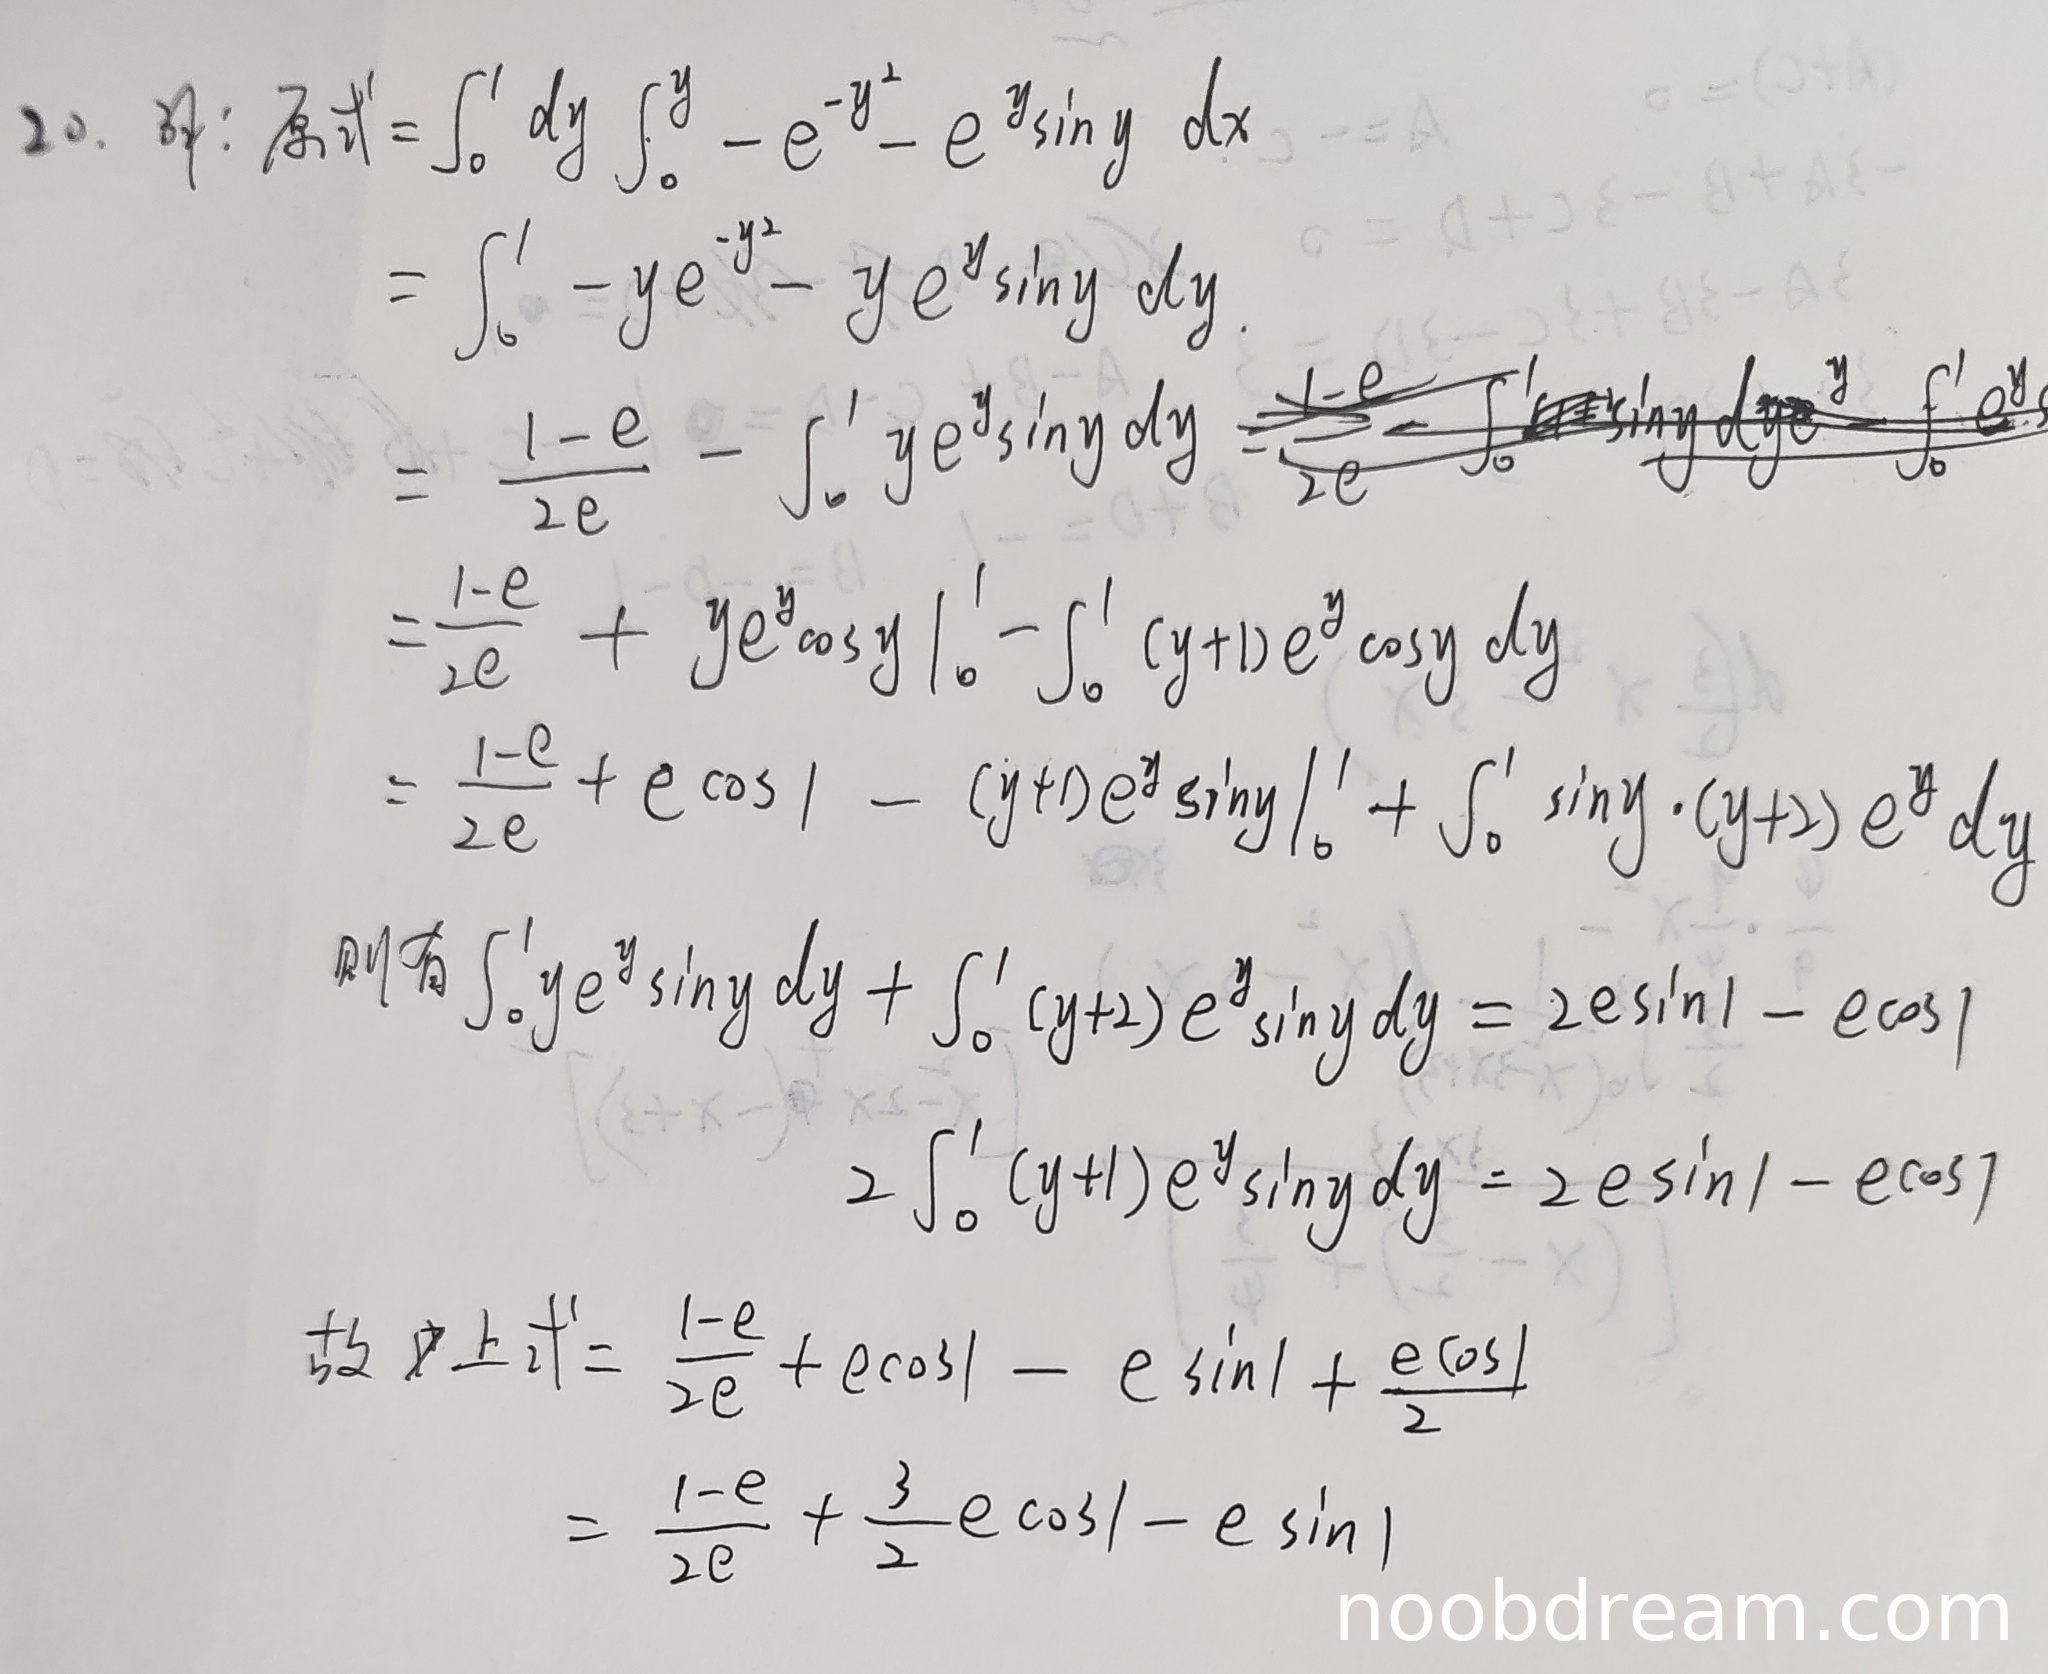 20. 解: 原式 = ∫₀¹ dy ∫₀^y -e^{-y²} - e^y siny dx
= ∫₀¹ -ye^{-y²} - ye^y siny dy.
= (1-e)/(2e) - ∫₀¹ ye^y siny dy
= (1-e)/(2e) + ye^y cosy |₀¹ - ∫₀¹ (y+1)e^y cosy dy
= (1-e)/(2e) + e cos1 - (y+1)e^y siny |₀¹ + ∫₀¹ siny·(y+2)e^y dy
则有 ∫₀¹ ye^y siny dy + ∫₀¹ (y+2)e^y siny dy = 2e sin1 - e cos1
2∫₀¹ (y+1)e^y siny dy = 2e sin1 - e cos1
故 上式 = (1-e)/(2e) + e cos1 - e sin1 + (e cos1)/2
= (1-e)/(2e) + 3/2 e cos1 - e sin1
noobdream.com